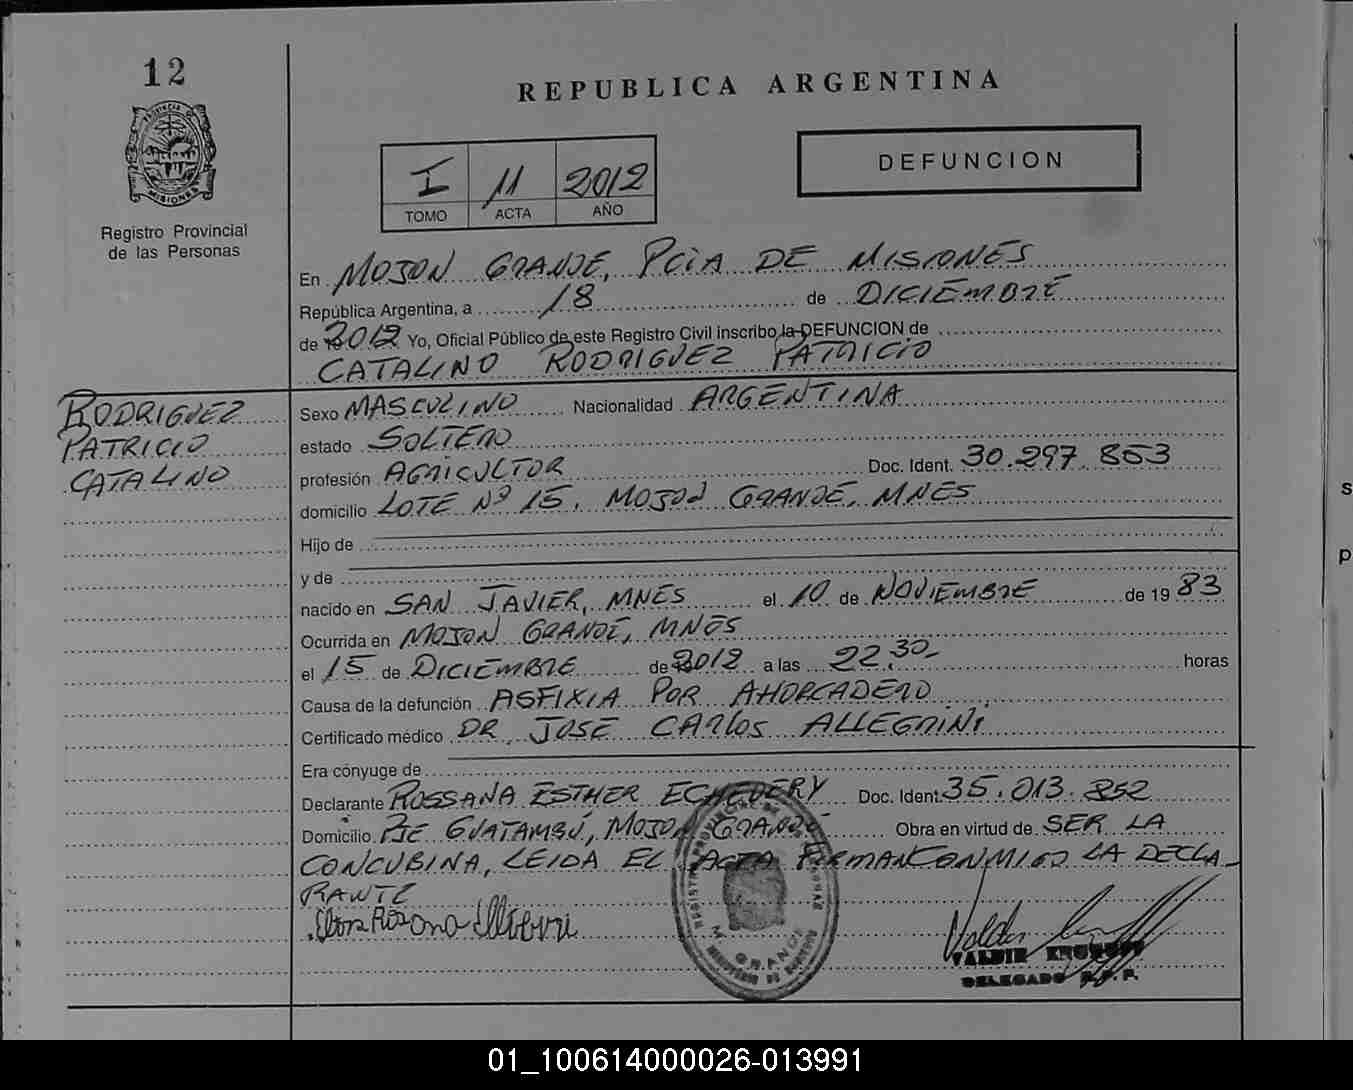 12
REPUBLICA ARGENTINA
PROVINCIA DE
MISIONES
Registro Provincial
de las Personas
I 11 2012
TOMO ACTA AÑO
DEFUNCION
En MOJON GRANDE, PCIA DE MISIONES
República Argentina, a 18 de DICIEMBRE
de 2012 Yo, Oficial Público de este Registro Civil inscribo la DEFUNCION de
CATALINO RODRIGUEZ PATRICIO
RODRIGUEZ
PATRICIO
CATALINO
Sexo MASCULINO Nacionalidad ARGENTINA
estado SOLTERO
profesión AGRICULTOR Doc. Ident. 30.297.853
domicilio LOTE Nº 15, MOJON GRANDE, MNES
Hijo de
y de
nacido en SAN JAVIER, MNES el 10 de NOVIEMBRE de 1983
Ocurrida en MOJON GRANDE, MNES
el 15 de DICIEMBRE de 2012 a las 22:30- horas
Causa de la defunción ASFIXIA POR AHORCADERO
Certificado médico DR JOSE CARLOS ALLEGRINI
Era cónyuge de
Declarante ROSSANA ESTHER ECHEVERY Doc. Ident. 35.013.852
Domicilio PJE GUATAMBÚ, MOJON GRANDE Obra en virtud de SER LA
CONCUBINA, LEIDA EL ACTA FIRMAN CONMIGO LA DECLA-
RANTE
VALDIR
DELEGADO R.P.P.
01_100614000026-013991